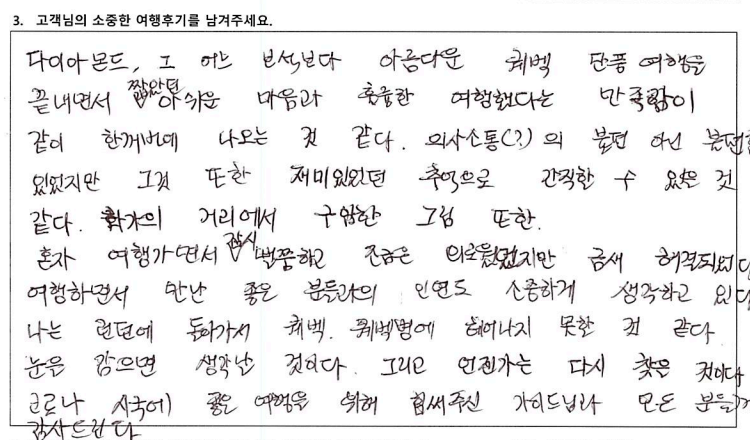 3. 고객님의 소중한 여행후기를 남겨주세요.
다이아몬드, 그 어느 보석보다 아름다운 퀘벡 단풍 여행을
끝내면서 짧았던 아쉬운 마음과 훌륭한 여행했다는 만족함이
같이 한꺼번에 나오는 것 같다. 의사소통(?)의 불편 아닌 불편함
있었지만 그것 또한 재미있었던 추억으로 간직할 수 있을 것
같다. 화가의 거리에서 구입한 그림 또한.
혼자 여행가면서 잠시 뻘쭘하고 조금은 외로웠었지만 금새 해결되었다
여행하면서 만난 좋은 분들과의 인연도 소중하게 생각하고 있다
나는 런던에 돌아가서 퀘벡. 퀘벡병에 헤어나지 못할 것 같다
눈을 감으면 생각날 것이다. 그리고 언젠가는 다시 찾을 것이다
코로나 시국에 좋은 여행을 위해 힘써주신 가이드님과 모든 분들께
감사드린다